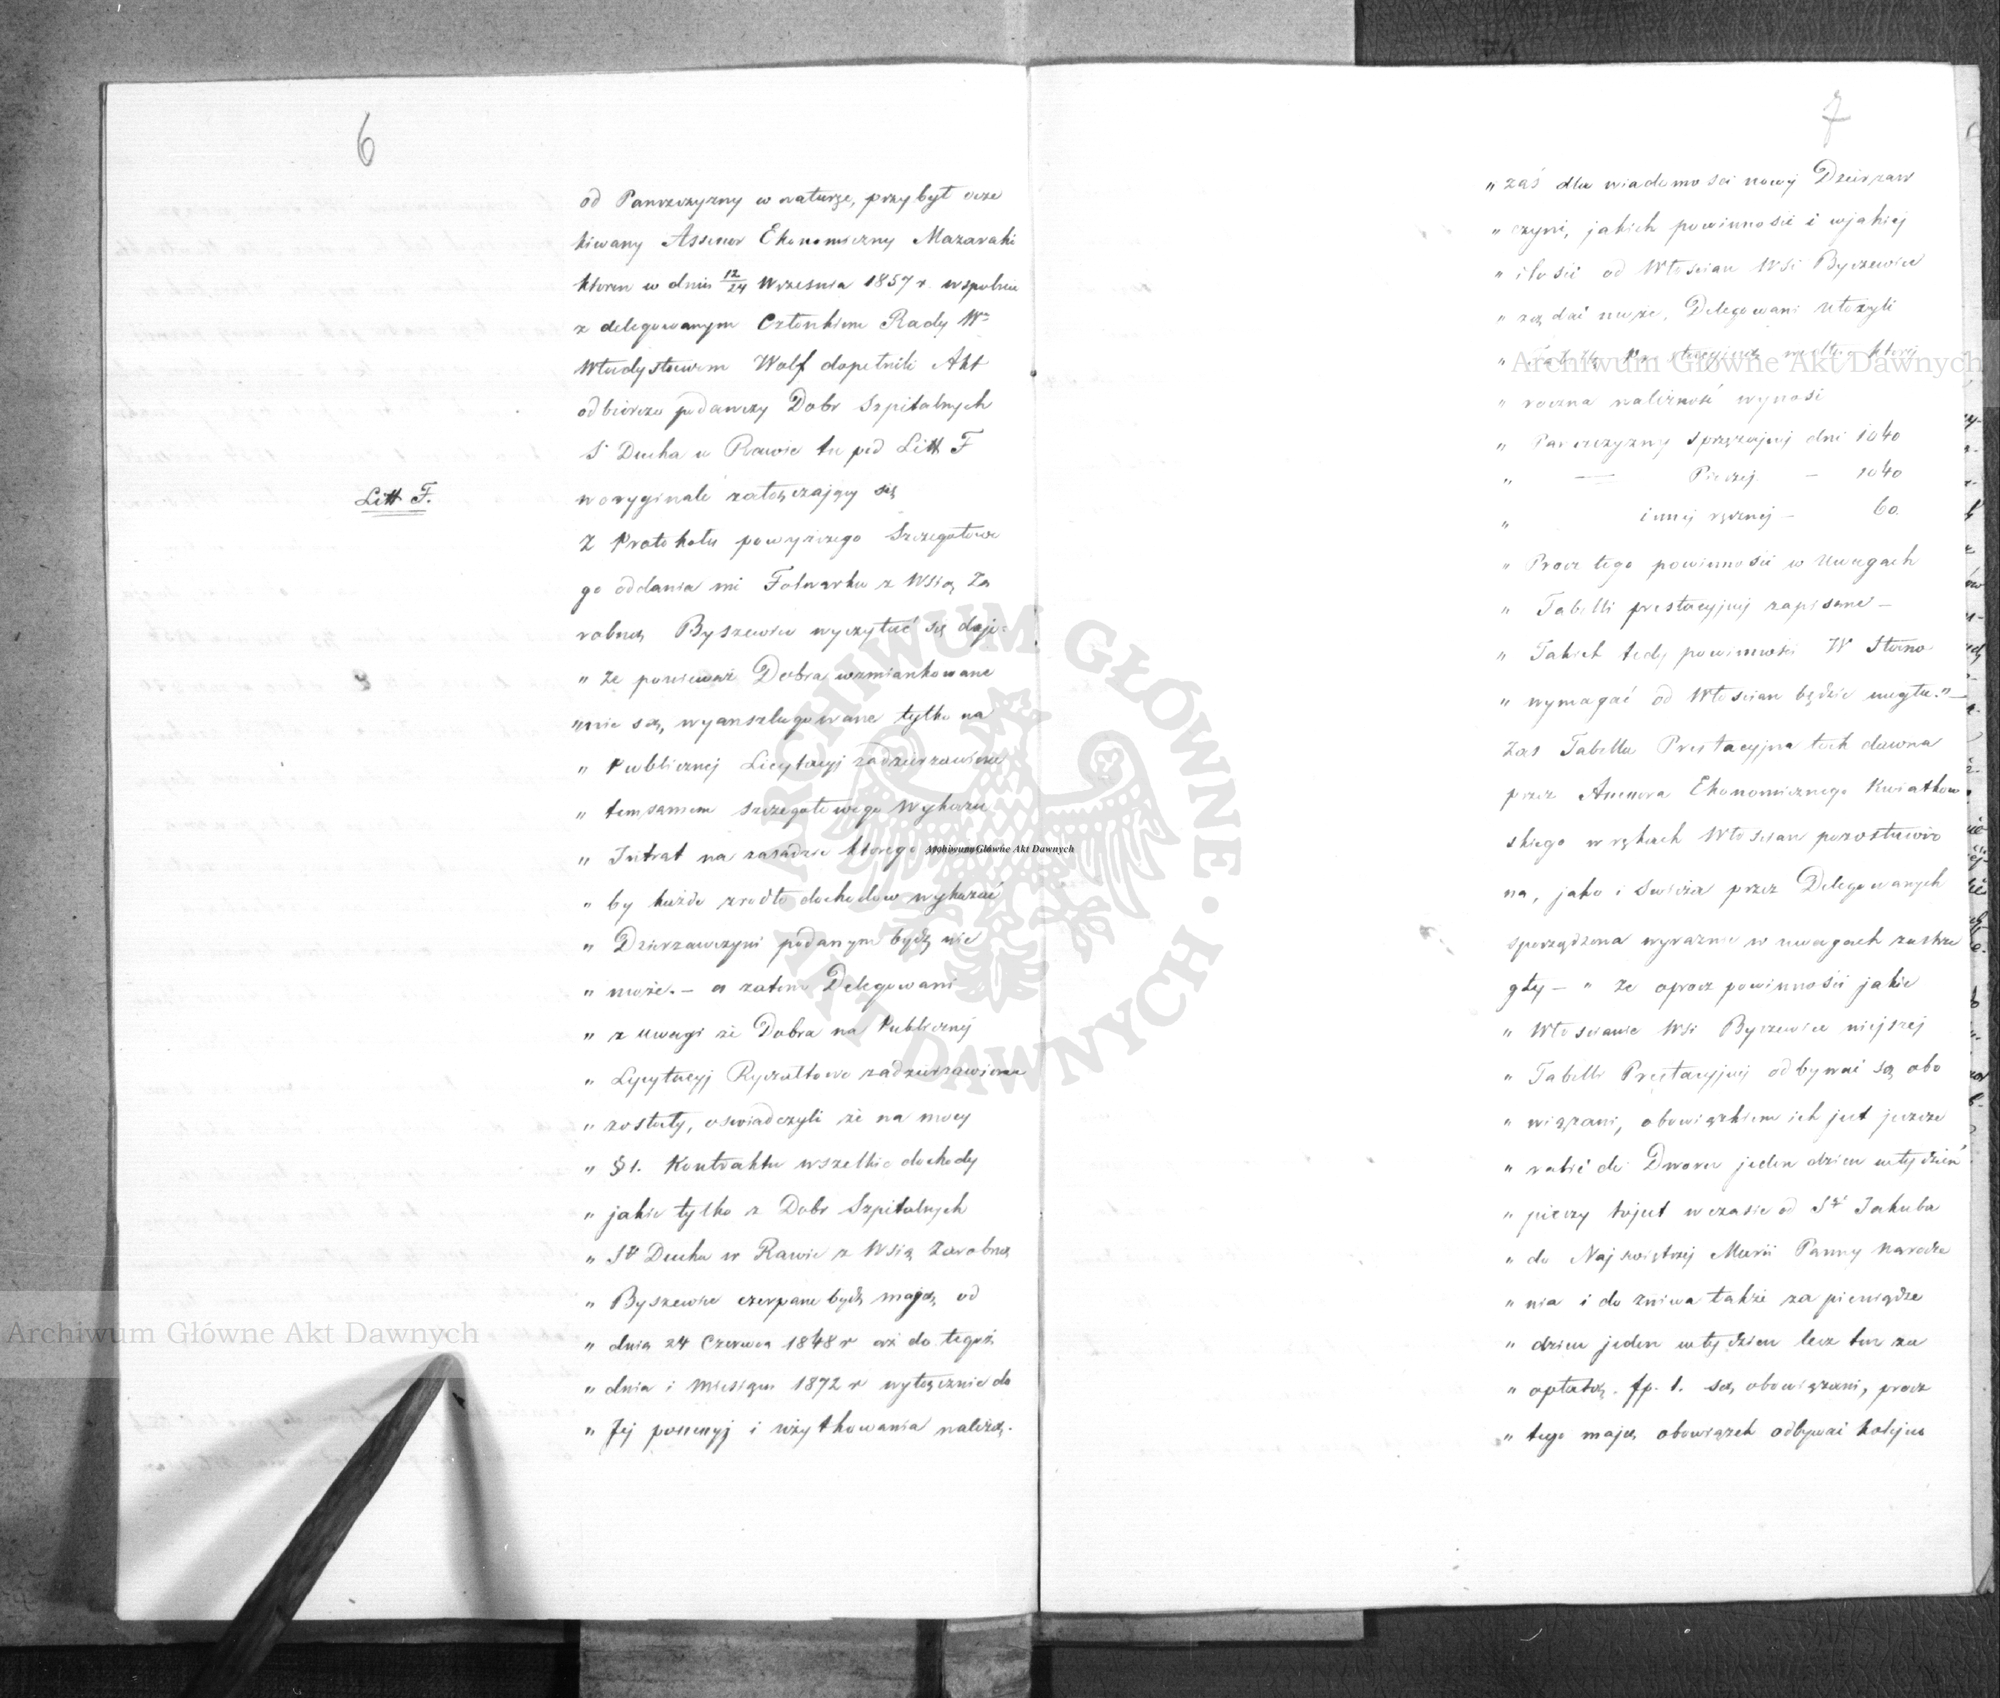 6
od Panszczyzny w naturze, przybył ocze
kiwany Assessor Ekonomiczny Mazaraki
ktoren w dniu 12/24 Września 1857 r. wspolnie
z delegowanym Członkiem Rady Wm
Władysławem Wolf dopełnili Akt
odbiorczo podawczy Dobr Szpitalnych
S Ducha w Rawie tu pod Litt F
Litt F.
w oryginale załączający się
Z Protokołu powyższego Szczegołowe
go oddania mi Folwarku z Wsią Za
robną Byszewice wyczytać się daje:
„ że ponieważ Dobra wzmiankowane
„ nie są, wyanszlagowane tylko na
„ Publicznej Licytacyi zadzierzawione
„ temsamem szczegołowego Wykazu
„ Intrat na zasadzie ktorego
„ by każde zrodło dochodow wykazać
„ Dzierzawczyni podanym bydź nie
„ może. – a zatem Delegowani
„ z uwagi że Dobra na Publicznej
„ Lycytacyj Ryczałtowo zadzierzawione
„ zostały, oswiadczyli że na mocy
„ § 1. Kontraktu wszelkie dochody
„ jakie tylko z Dobr Szpitalnych
„ Sgo Ducha w Rawie z Wsią Zarobną
„ Byszewice czerpane bydź mogą, od
„ dnia 24 Czerwca 1848 r aż do tegoż
„ dnia i Miesiąca 1872 r wyłącznie do
„ Jej possessyj i użytkowania należą.
7
„ zaś dla wiadomosci nowej Dzierzaw
„ czyni, jakich powinnosci i w jakiej
„ ilosci od Włoscian Wsi Byszewice
„ żądać może, Delegowani Ułożyli
„ Tabellę Prestacyjną wedle ktorej
„ roczna należność wynosi
„ Panszczyzny sprzężajnej dni 1040
„ — Pieszej — 1040
„ innej ręcznej — 60.
„ Procz tego powinnosci w Uwagach
„ Tabelli prestacyjnej zapisane –
„ Takich tedy powinnosci W
„ wymagać od Włoscian będzie mogła.” –
Zas Tabella Prestacyjna tak dawna
przez Assessora Ekonomicznego Kwiatkow
skiego w rękach Włoscian pozostawio
na, jako i swieża przez Delegowanych
sporządzona wyraznie w uwagach zastrze
gły – „ że oprocz powinnosci jakie
„ Włoscianie Wsi Byszewice niejszej
„ Tabelli Prestacyjnej odbywać są obo
„ wiązani, obowiązkiem ich jest jeszcze
„ robić do Dworu jeden dzien w tydzień
„ pieszy to jest w czasie od Sgo Jakuba
„ do Najswiętszej Marii Panny Narodze
„ nia i do żniwa także za pieniądze
„ dzien jeden w tydzien lecz ten za
„ opłatą, fp. 1. są obowiązani, procz
„ tego mają obowiązek odbywać kolejno
Archiwum Główne Akt Dawnych
Archiwum Główne Akt Dawnych
Archiwum Główne Akt Dawnych
ARCHIWUM GŁÓWNE · AKT DAWNYCH ·